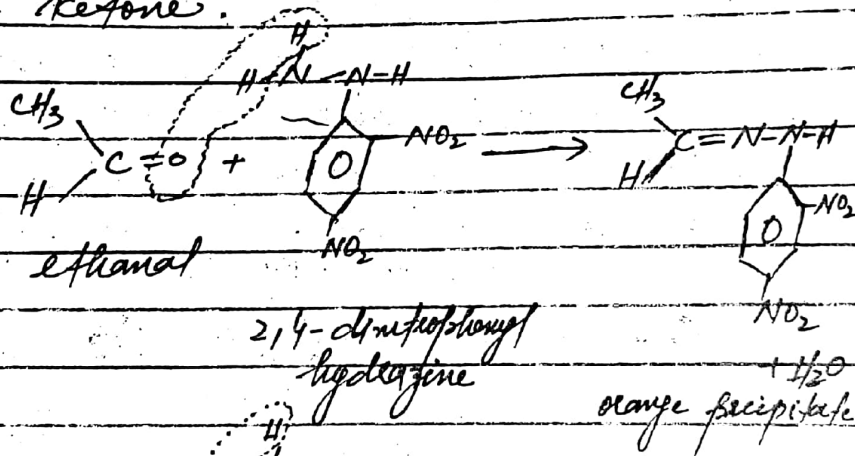 ketone.
H
H-N-N-H
CH3
C=O
H
+
NO2
NO2
CH3
C=N-N-H
H
NO2
NO2
ethanal
2,4-dinitrophenyl
hydrazine
+ H2O
orange precipitate
H